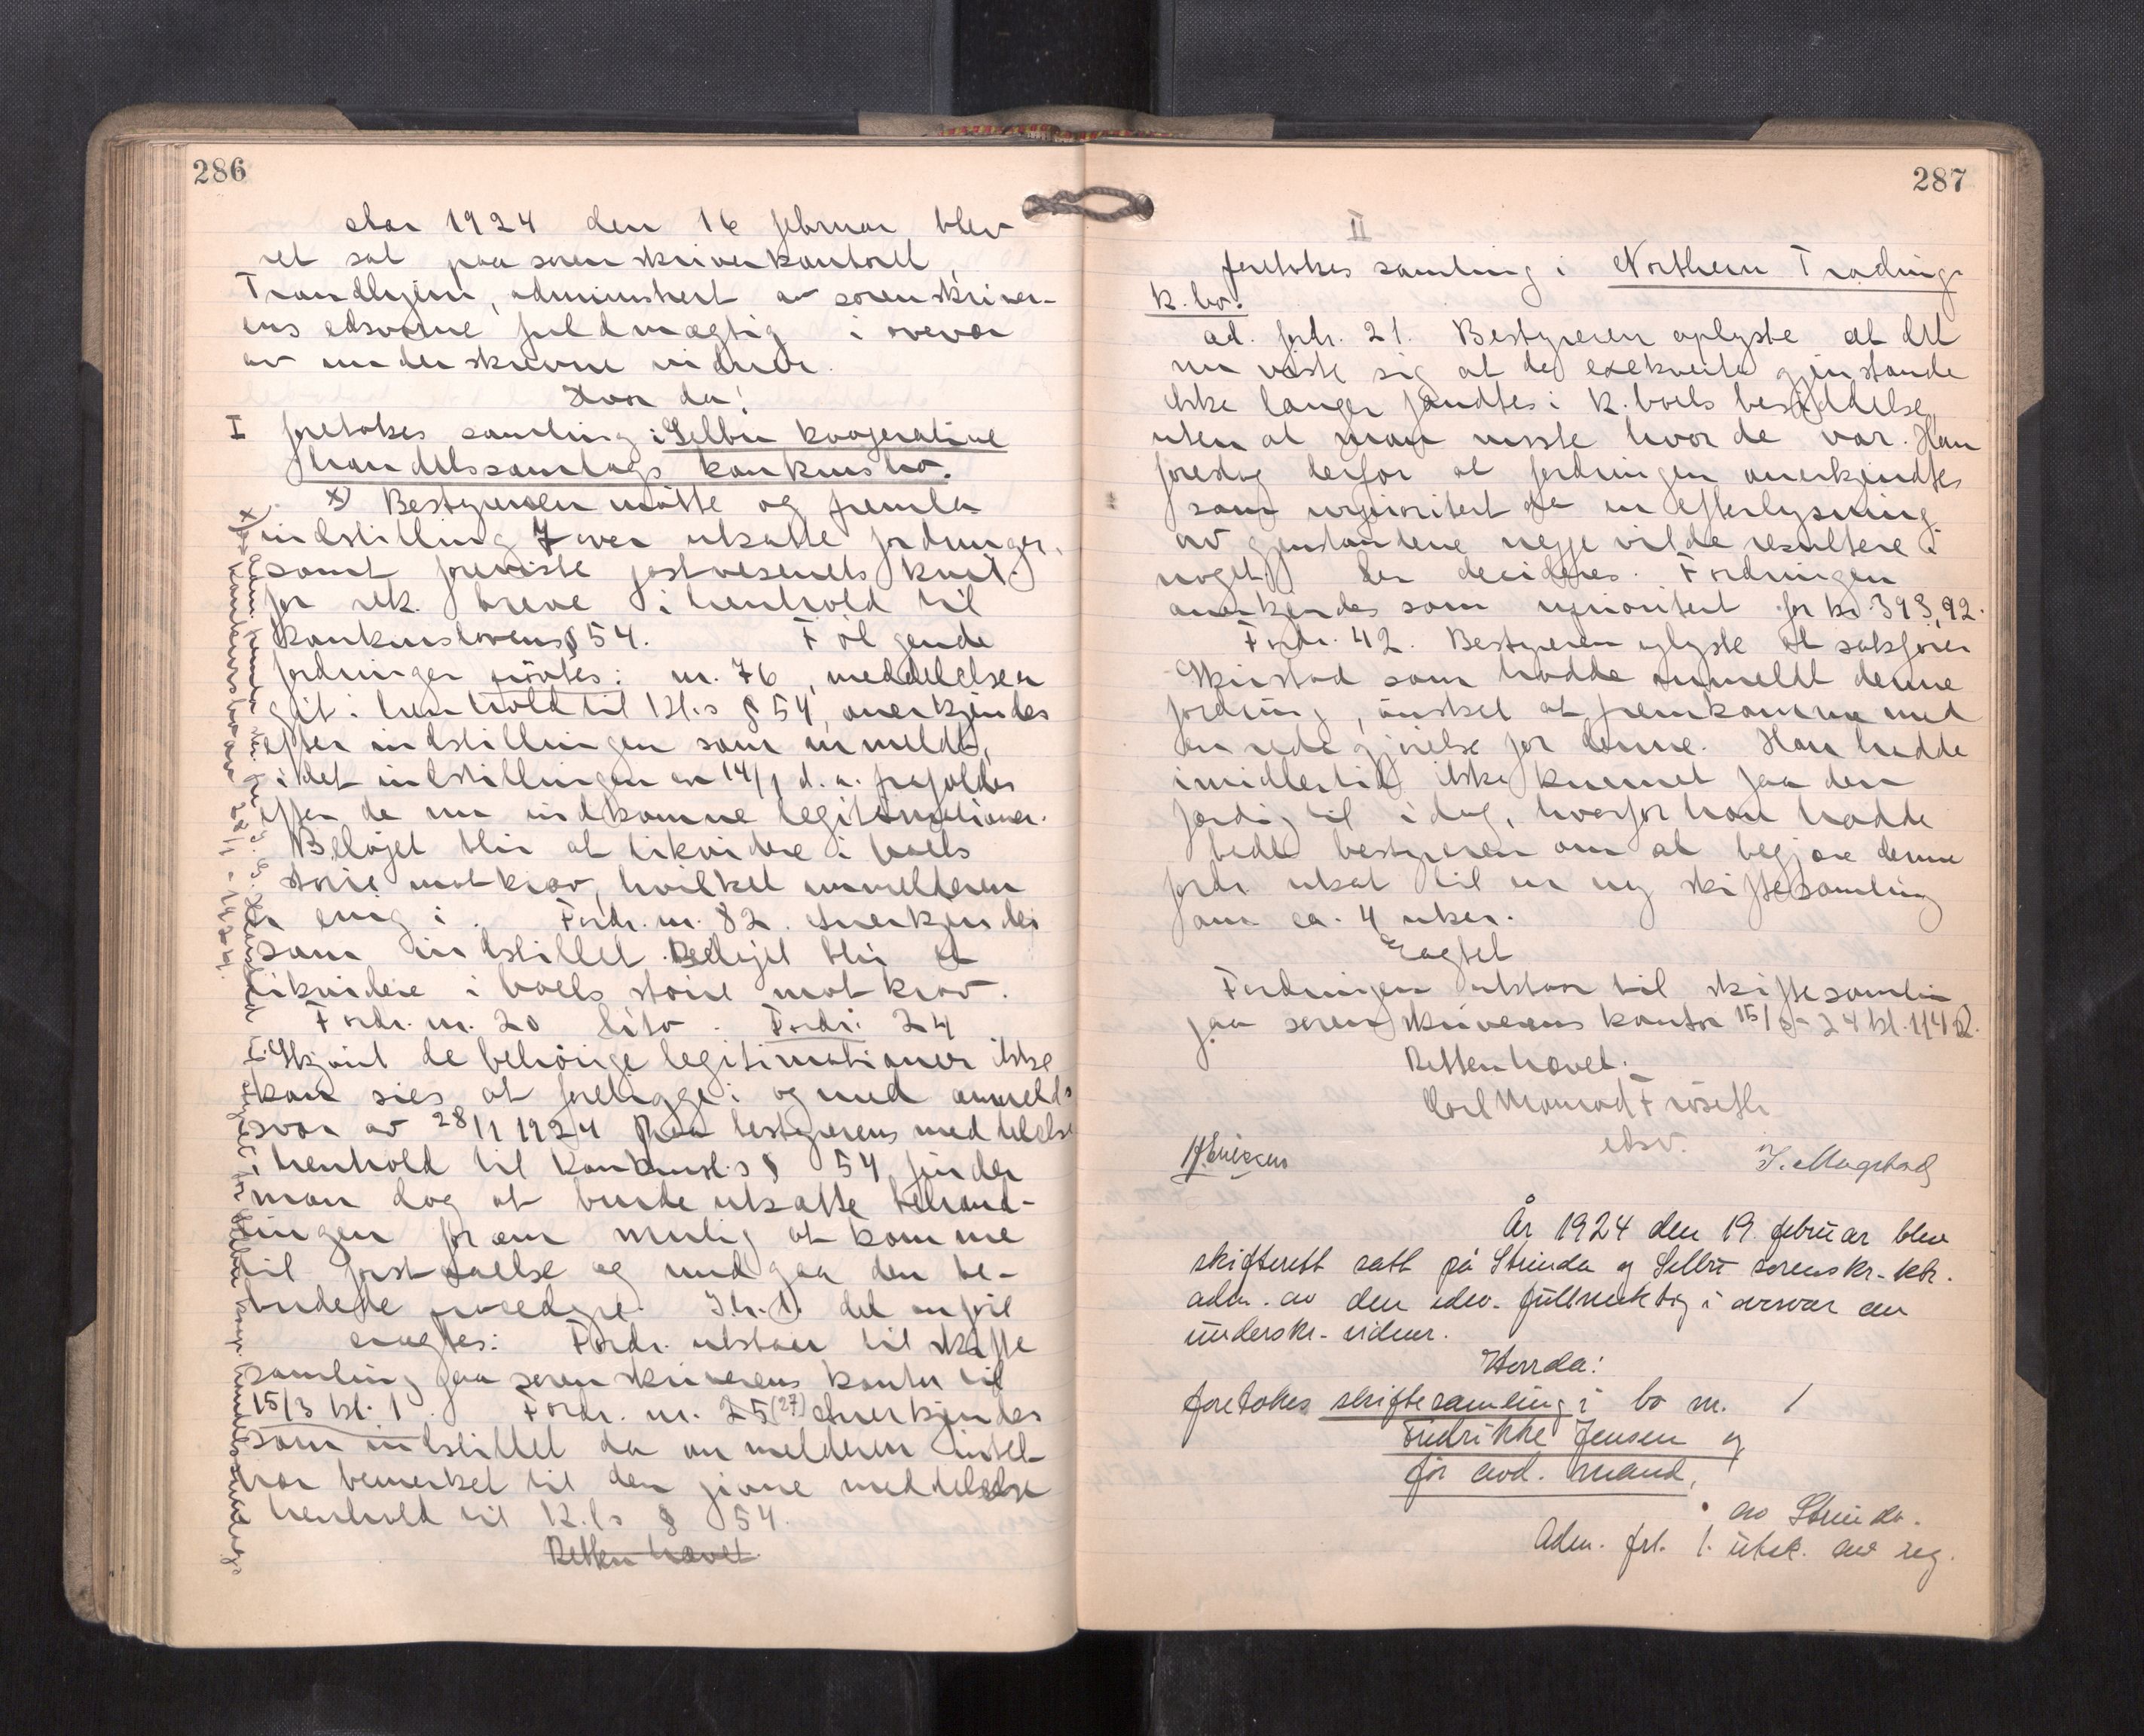 286
Aar 1924 den 16 februar blev
ret sat paa sorenskriverkontoret,
Trondhjem, administrert av sorenskriver-
ens edsvorne fuldmægtig i overvær
av underskrevne vidner.
Hvor da!
I foretokes samling i Selbu kooperative
handelssamlags konkursbo.
x) Bestyreren møtte og fremla
indstilling 7 over utsatte fordringer,
samt foreviste postvesenets kvit.
for rek. breve i henhold til
konkurslovens § 54. Følgende
fordringer prøvtes: nr. 76, meddelelsen
git i henhold til Kl.s § 54, anerkjendes
efter indstillingen som anmeldt,
idet indstillingen av 14/1 d. a. frafoldes
efter de nu indkomne legitimationer.
Beløpet blir at likvidere i boets
større motkrav, hvilket anmelderen
er enig i. Fordr. nr. 82. Anerkjendes
som indstillet. Beløpet blir at
likvidere i boets større motkrav.
Fordr. nr. 20 dito. Fordr. 24
Skjønt de behørige legitimationer ikke
kan sies at foreligge i og med anmeld.s
svar av 28/1 1924 paa bestyrerens meddelelse
i henhold til konkursl.s § 54, finder
man dog at burde utsatte behand-
lingen for om mulig at komme
til forstaaelse og undgaa den be-
tydede procedyre. Ti det
eragtes: Fordr. utstaar til skifte
samling paa sorenskriverens kontor til
15/3 kl. 1. Fordr. nr. 25 (27) Anerkjendes
som indstillet da anmelderen intet
har bemerket til den givne meddelelse
i henhold til K.ls § 54.
Retten hævet
x) konkursbo av 28/1 - 1924.
287
II
foretokes samling i Northern Trading
k. bo.
ad. fordr. 21. Bestyreren oplyste at det
nu viste sig at de exekverte gjenstande
ikke længer fandtes i k. boets besiddelse,
uten at man visste hvor de var. Han
foreslog derfor at fordringen anerkjendtes
som uprioritert da en efterlysning
av gjenstandene neppe vilde resultere i
noget. Der decideres. Fordringen
anerkjendes som uprioritert for kr. 393,92.
Fordr. 42. Bestyreren oplyste at sakfører
Skirstad som hadde anmeldt denne
fordring, ønsket at fremkomme med
en redegjørelse for denne. Han hadde
imidlertid ikke kunnet faa den
færdig til idag, hvorfor han hadde
bedt bestyreren om at begjære denne
fordr. utsat til en ny skiftesamling
om ca. 4 uker.
Eragtet
Fordringen utstaar til skiftesamling
paa sorenskriverens kontor 15/3 - 24 kl. 11 1/4
Retten hævet.
Carl Monrad Frøseth
edsv.
H. Eriksen
J. Magstad
År 1924 den 19. februar blev
skifterett satt på Strinda og Selbu sorenskr. ktr.
adm. av den edsv. fullmektig i overvær av
underskr. vidner.
Hvorda:
foretokes skiftesamling i bo nr. 1
Fredrikke Jensen og
før avd. mand,
av Strinda.
Adm. frl. 1. utsk. av reg.